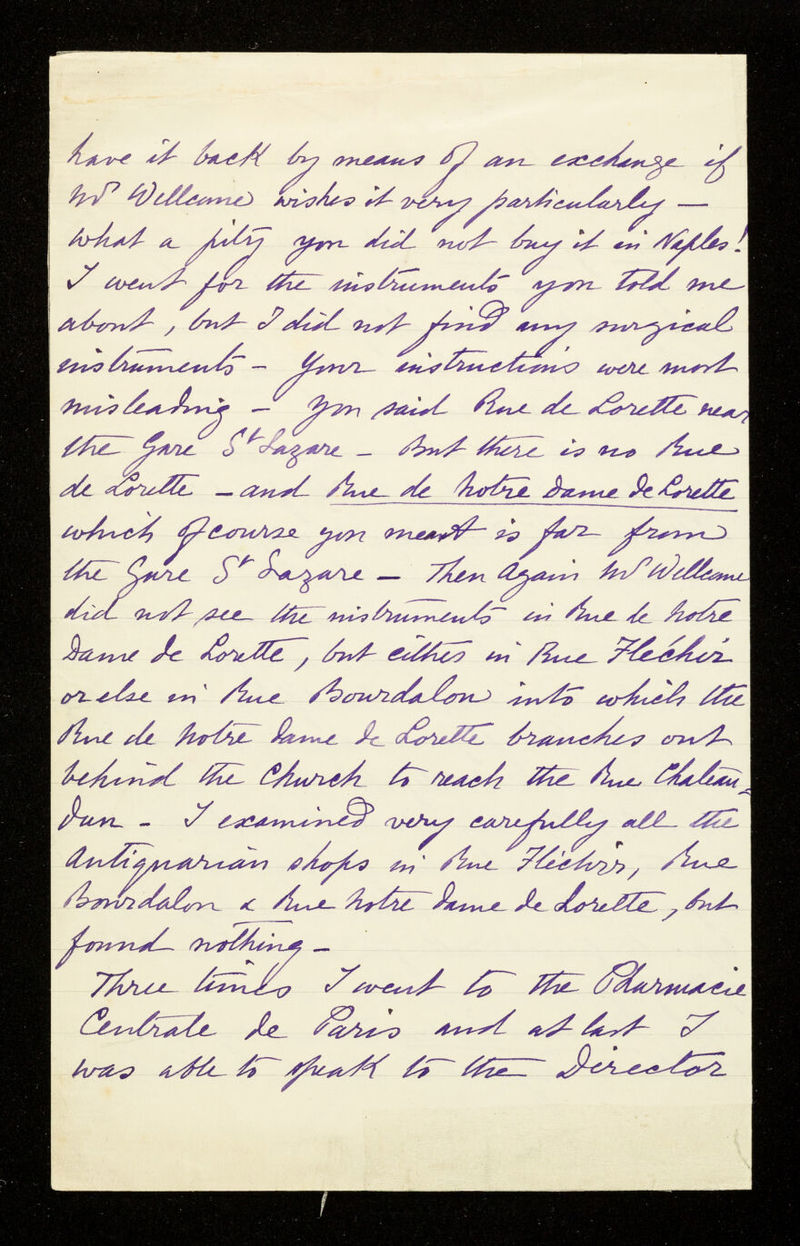 have it back by means of an exchange if
Mr Wellcome wishes it very particularly —
what a pity you did not buy it in Naples!
I went for the instruments you told me
about, but I did not find any surgical
instruments - Your instructions were most
misleading - You said Rue de Lorette near
the Gare St Lazare - But there is no Rue
de Lorette - and Rue de Notre Dame de Lorette
which of course you meant is far from
the Gare St Lazare - Then again Mr Wellcome
did not see the instruments in Rue de Notre
Dame de Lorette, but either in Rue Fléchir
or else in Rue Bourdalou into which the
Rue de Notre Dame de Lorette branches out
behind the Church to reach the Rue Chateau=
dun - I examined very carefully all the
antiquarian shops in Rue Fléchir, Rue
Bourdalou & Rue Notre Dame de Lorette, but
found nothing -
Three times I went to the Pharmacie
Centrale de Paris and at last I
was able to speak to the Director